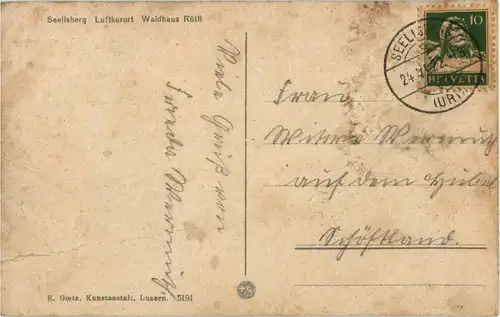 Seelisberg Luftkurort Waldhaus Rütli
Viele Grüße von
Frieda Wernuz
10
HELVETIA
SEELIS
24.
(URI)
Frau
Witwe Wernuz
auf dem Hubel
Schöftland.
E. Goetz, Kunstanstalt, Luzern. 5191